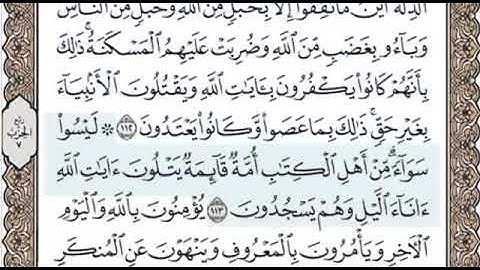 ٱلذِّلَّةُ أَيْنَ مَا ثُقِفُوٓا۟ إِلَّا بِحَبْلٍ مِّنَ ٱللَّهِ وَحَبْلٍ مِّنَ ٱلنَّاسِ
وَبَآءُو بِغَضَبٍ مِّنَ ٱللَّهِ وَضُرِبَتْ عَلَيْهِمُ ٱلْمَسْكَنَةُ ۚ ذَٰلِكَ
بِأَنَّهُمْ كَانُوا۟ يَكْفُرُونَ بِـَٔايَٰتِ ٱللَّهِ وَيَقْتُلُونَ ٱلْأَنۢبِيَآءَ
بِغَيْرِ حَقٍّ ۚ ذَٰلِكَ بِمَا عَصَوا۟ وَّكَانُوا۟ يَعْتَدُونَ ١١٢ ۞ لَيْسُوا۟
سَوَآءً ۗ مِّنْ أَهْلِ ٱلْكِتَٰبِ أُمَّةٌ قَآئِمَةٌ يَتْلُونَ ءَايَٰتِ ٱللَّهِ
ءَانَآءَ ٱلَّيْلِ وَهُمْ يَسْجُدُونَ ١١٣ يُؤْمِنُونَ بِٱللَّهِ وَٱلْيَوْمِ
ٱلْءَاخِرِ وَيَأْمُرُونَ بِٱلْمَعْرُوفِ وَيَنْهَوْنَ عَنِ ٱلْمُنكَرِ
ربع
الحزب
٧